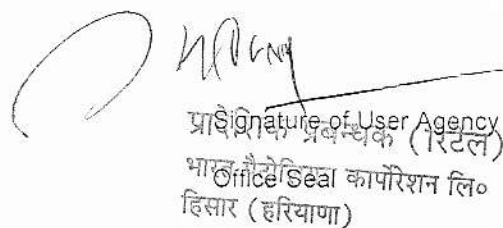 Signature of User Agency
प्रादेशिक प्रबन्धक (रिटेल)
Office Seal
भारत पैट्रोलियम कार्पोरेशन लि०
हिसार (हरियाणा)